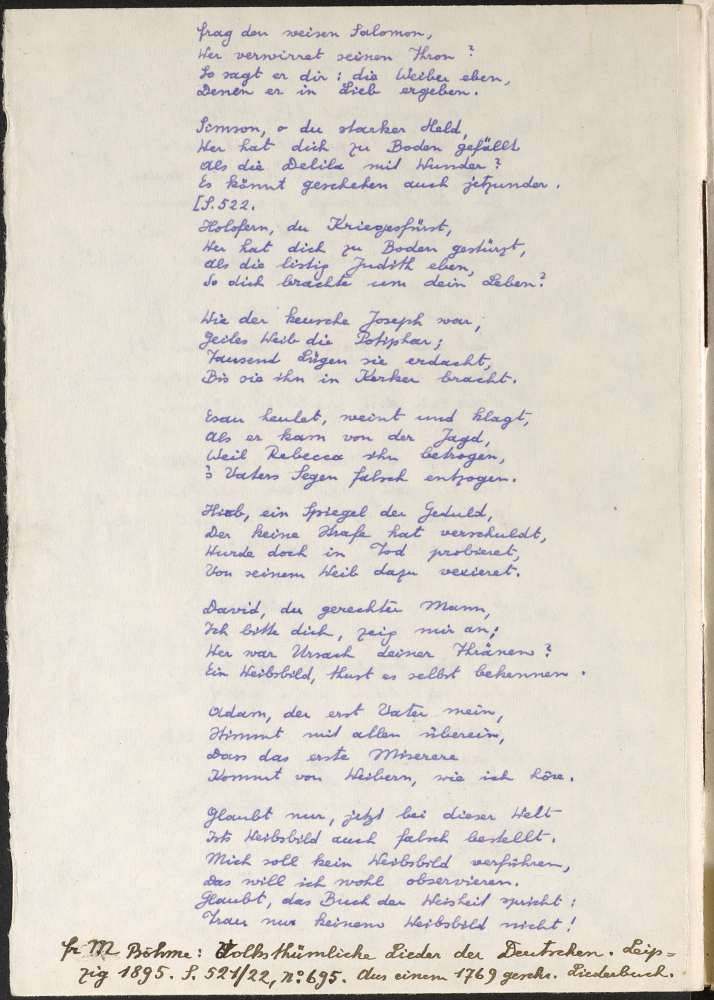 frag den weisen Salomon,
Wer verwirret seinen Thron?
So sagt er dir: die Weiber eben,
Denen er in Lieb ergeben.
Simson, o du starker Held,
Wer hat dich zu Boden gefällt
Als die Delila mit Wunder?
Es könnt geschehen auch jetzunder.
[S.522.
Holofern, du Kriegesfürst,
Wer hat dich zu Boden gestürzt,
Als die listig Judith eben,
So dich brachte um dein Leben?
Wie der keusche Joseph war,
Geiles Weib die Potiphar;
Tausend Lügen sie erdacht,
Bis sie ihn in Kerker bracht.
Esau heulet, weint und klagt,
Als er kam von der Jagd,
Weil Rebecca ihn betrogen,
's Vaters Segen falsch entzogen.
Hiob, ein Spiegel der Geduld,
Der keine Strafe hat verschuldt,
Wurde doch in Tod probieret,
Von seinem Weib dazu vexieret.
David, du gerechter Mann,
Ich bitte dich, zeig mir an;
Wer war Ursach deiner Thränen?
Ein Weibsbild, thust es selbst bekennen.
Adam, der erst Vater mein,
Stimmt mit allen überein,
Dass das erste Miserere
Kommt von Weibern, wie ich höre.
Glaubt nur, jetzt bei dieser Welt
Ists Weibsbild auch falsch bestellt.
Mich soll kein Weibsbild verführen,
Das will ich wohl observieren.
Glaubt, das Buch der Weisheit spricht:
Trau nur keinem Weibsbild nicht!
Fr. M. Böhme: Volksthümliche Lieder der Deutschen. Leip=
zig 1895. S. 521/22, no 695. Aus einem 1769 geschr. Liederbuch.